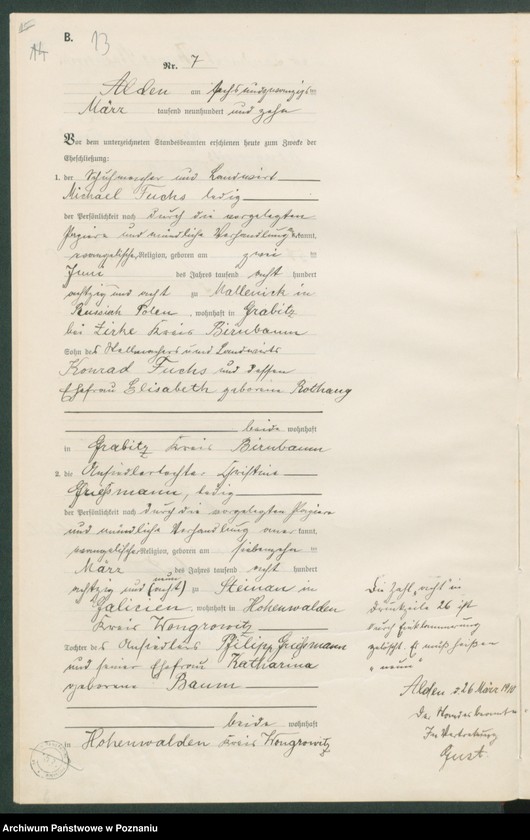 B.
13
14
Nr. 7
Alden am sechsundzwanzigsten
März tausend neunhundert und zehn
Vor dem unterzeichneten Standesbeamten erschienen heute zum Zwecke der
Eheschließung:
1. der Schuhmacher und Landwirt
Michael Fuchs ledig
der Persönlichkeit nach durch die vorgelegten
Papiere und mündliche Verhandlung anerkannt,
evangelischer Religion, geboren am zwei ten
Juni des Jahres tausend acht hundert
achtzig und acht zu
Russisch Polen, wohnhaft in Grabitz
bei Zirke Kreis Birnbaum
Sohn des Stellmachers und Landwirts
Konrad Fuchs und dessen
Ehefrau Elisabeth geborene Rothaug
beide wohnhaft
in Grabitz Kreis Birnbaum
2. die Ansiedlertochter Christine
Grießmann, ledig
der Persönlichkeit nach durch die vorgelegten Papiere
und mündliche Verhandlung aner kannt,
evangelischer Religion, geboren am siebenzehn ten
März des Jahres tausend acht hundert
neun
achtzig und (acht) zu Steinau in
Galicien, wohnhaft in Hohenwalden
Kreis Wongrowitz
Tochter des Ansiedlers Philipp Grießmann
und seiner Ehefrau Katharina
geborene Baum
beide wohnhaft
in Hohenwalden Kreis Wongrowitz
Die Zahl "acht" in
Druckzeile 26 ist
durch Einklammerung
gelöscht. Es muß heißen
"neun"
Alden d. 26 März 1910
Der Standesbeamte
In Vertretung
Gust.
Archiwum Państwowe w Poznaniu